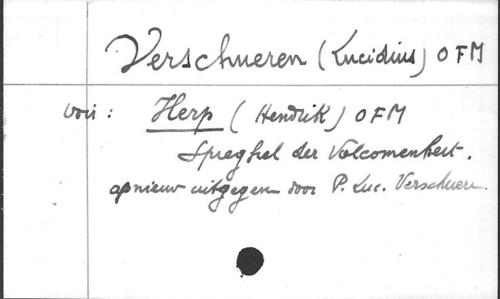 Verschueren (Lucidius) OFM
voir : Herp (Hendrik) OFM
Spieghel der Volcomenheit.
opnieuw uitgegeven door P. Luc. Verschueren.